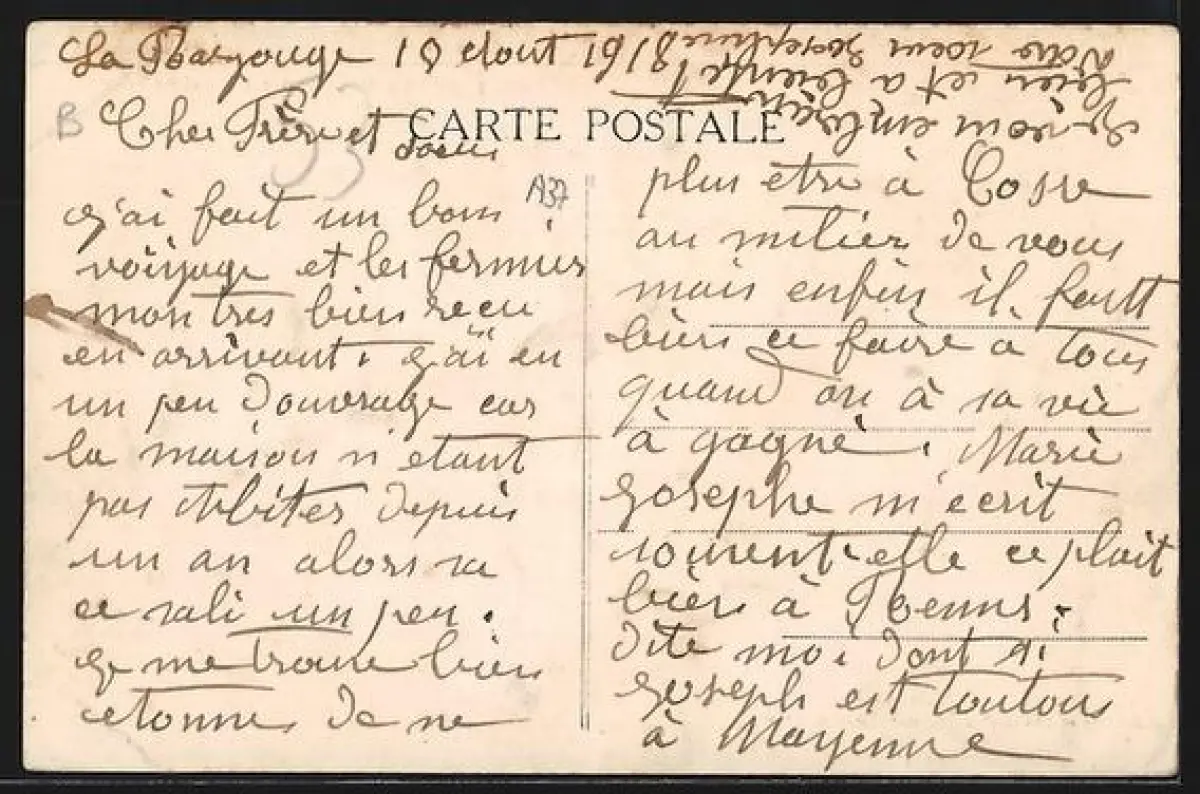 La Bazouge 10 Aout 1918
Cher Frère et
Soeur
CARTE POSTALE
B
A37
53
j'ai fait un bon
voiyage et les fermier
mon tres bien recu
en arrivant. j'ai eu
un peu d'ouvrage car
la maison n'etant
pas abiter depuis
un an alors sa
ce sali un peu.
je me trouve bien
etonner de ne
plus etre à Cosse
au milier de vous
mais enfin il fautt
bien ce faire a tous
quand on à sa vie
à gagné. Marie
Josephe m'ecrit
souvent. elle ce plait
bien à
dite moi dont si
Joseph est toutous
à Mayenne
je vous embrasse
bien et a bientot
Votre soeur Josephine